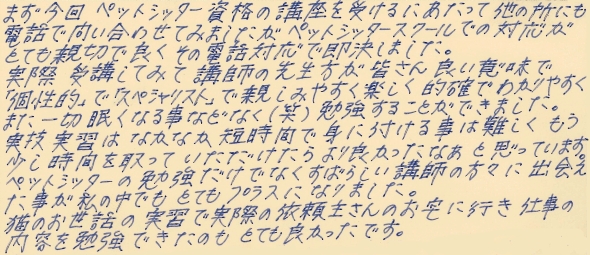 まず今回 ペットシッター資格の講座を受けるにあたって他の所にも
電話で問い合わせてみましたがペットシッタースクールでの対応が
とても親切で良くその電話対応で即決しました。
実際受講してみて講師の先生方が皆さん良い意味で
「個性的」で「スペシャリスト」で親しみやすく楽しく的確でわかりやすく
また一切眠くなる事などなく(笑)勉強することができました。
実技実習はなかなか短時間で身に付ける事は難しくもう
少し時間を取っていただけたらより良かったなあと思っています。
ペットシッターの勉強だけでなくすばらしい講師の方々に出会え
た事が私の中でもとてもプラスになりました。
猫のお世話の実習で実際の依頼主さんのお宅に行き仕事の
内容を勉強できたのもとても良かったです。